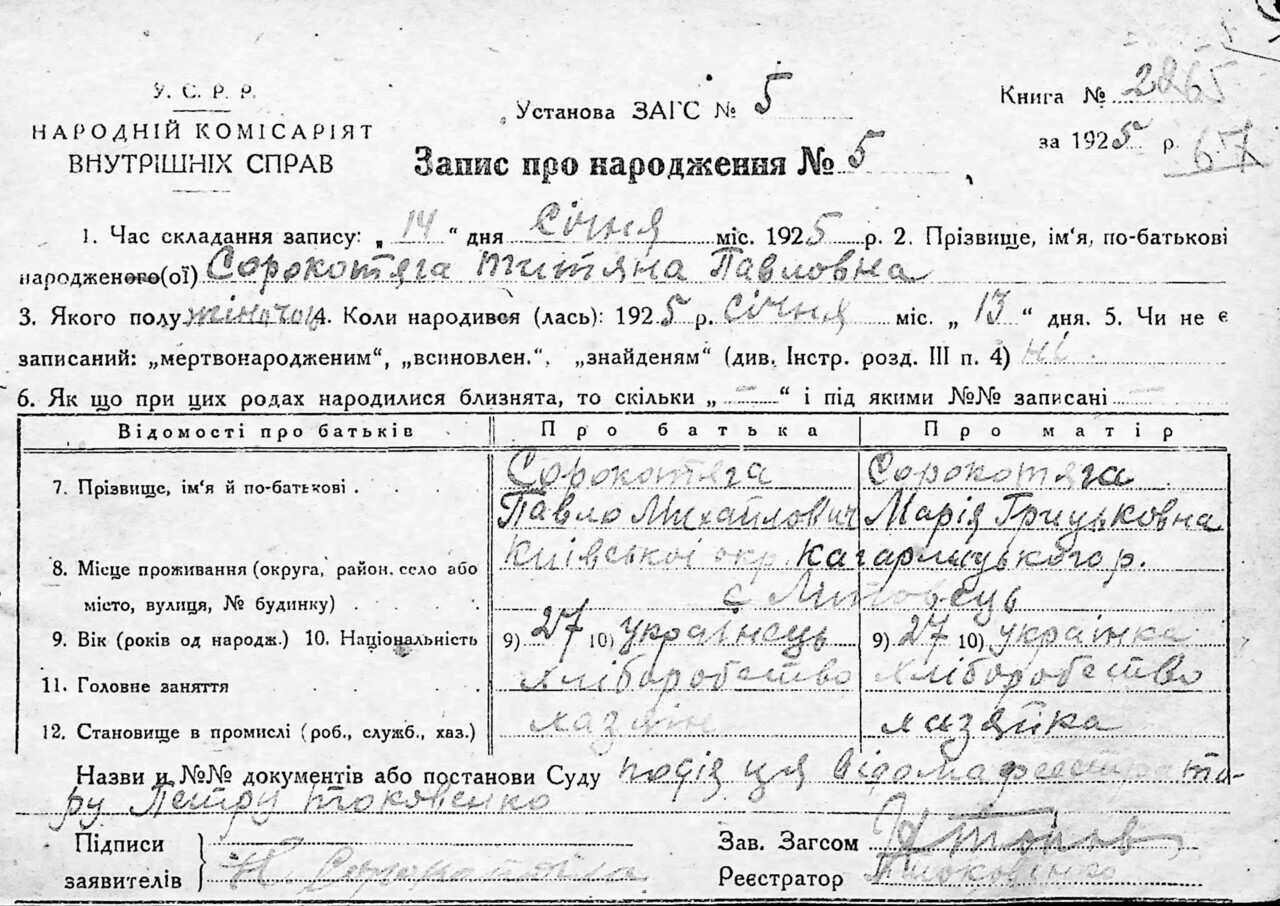 У. С. Р. Р.
НАРОДНІЙ КОМІСАРІЯТ
ВНУТРІШНІХ СПРАВ
Установа ЗАГС № 5
Запис про народження № 5
Книга № 2265
за 1925 р. 67
1. Час складання запису: „14“ дня Січня міс. 1925 р. 2. Прізвище, ім'я, по-батькові
народженого(ої) Сорокотяга Титяна Павловна
3. Якого полу жіночог 4. Коли народився (лась): 1925 р. Січня міс. „13“ дня. 5. Чи не є
записаний: „мертвонародженим“, „всиновлен.“, „знайденям“ (див. Інстр. розд. III п. 4) ні.
6. Як що при цих родах народилися близнята, то скільки „—“ і під якими №№ записані —
Відомості про батьків Про батька Про матір
7. Прізвище, ім'я й по-батькові . . . . Сорокотяга Сорокотяга
Павло Михайлович Марія Грицьковна
8. Місце проживання (округа, район, село або Київської окр. Кагарлицького р.
місто, вулиця, № будинку) . . . . . с
9. Вік (років од народж.) 10. Національність 9) 27 10) українець 9) 27 10) українка
11. Головне заняття . . . . хліборобство хліборобество
12. Становище в промислі (роб., служб., хаз.) хазяін хазяйка
Назви и №№ документів або постанови Суду подія ця відома реестрато-
ру Петру
Підписи
заявителів Сорокотяга
Зав. Загсом
Реєстратор